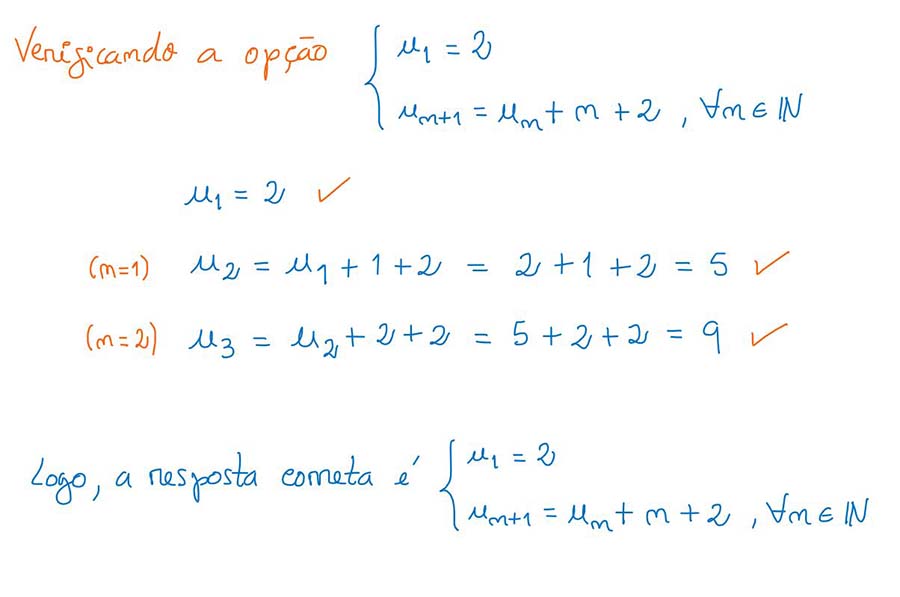 Verificando a opção { u₁ = 2
uₙ₊₁ = uₙ + n + 2 , ∀n ∈ ℕ
u₁ = 2 ✓
(n=1) u₂ = u₁ + 1 + 2 = 2 + 1 + 2 = 5 ✓
(n=2) u₃ = u₂ + 2 + 2 = 5 + 2 + 2 = 9 ✓
Logo, a resposta correta é { u₁ = 2
uₙ₊₁ = uₙ + n + 2 , ∀n ∈ ℕ